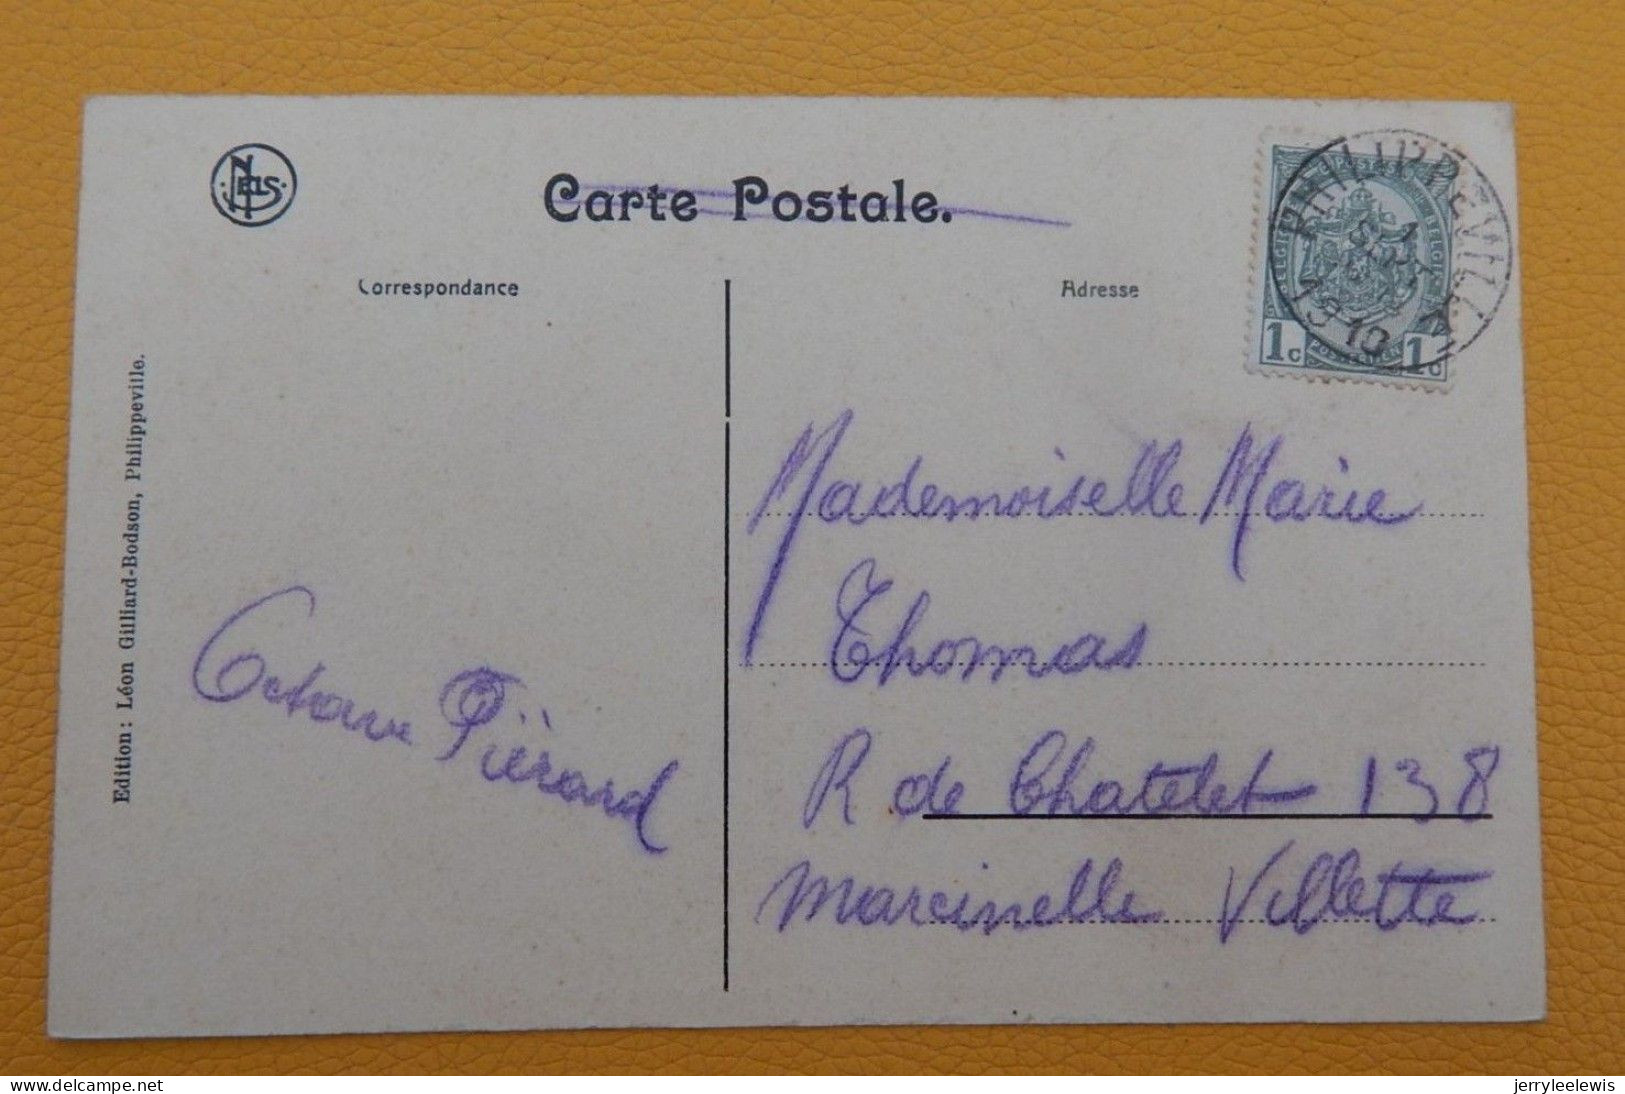 NELS
Carte Postale.
Correspondance
Adresse
Edition : Léon Gilliard-Bodson, Philippeville.
PHILIPPEVILLE
1
SEPT
1910
1c
1c
Mademoiselle Marie
Thomas
R de Chatelet 138
Marcinelle Villette
Octave Piérard
delcampe.net
jerryleelewis